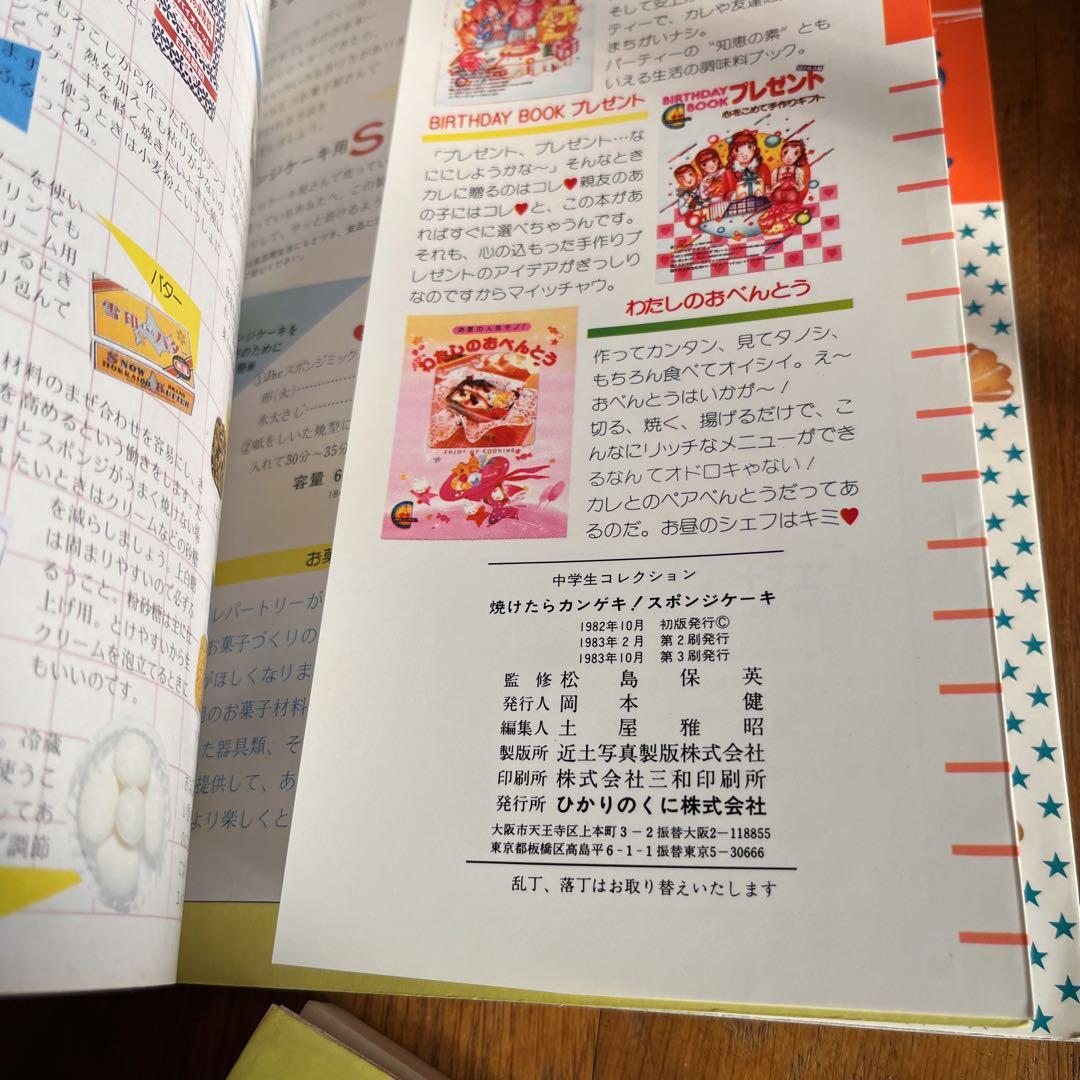 ティーで、カレや友達に
まちがいナシ。
パーティーの“知恵の素”とも
いえる生活の調味料ブック。
BIRTHDAY BOOK プレゼント
「プレゼント、プレゼント…な
ににしようかな〜」そんなとき
カレに贈るのはコレ♥親友のあ
の子にはコレ♥と、この本があ
ればすぐに選べちゃうんです。
それも、心の込もった手作りプ
レゼントのアイデアがぎっしり
なのですからマイッチャウ。
BIRTHDAY
BOOK プレゼント
心をこめて手作りギフト
わたしのおべんとう
お昼の人気モノ!
わたしのおべんとう
ENJOY MY COOKING
作ってカンタン、見てタノシ、
もちろん食べてオイシイ。え〜
おべんとうはいかが〜!
切る、焼く、揚げるだけで、こ
んなにリッチなメニューができ
るなんてオドロキャない!
カレとのペアべんとうだってあ
るのだ。お昼のシェフはキミ♥
中学生コレクション
焼けたらカンゲキ!スポンジケーキ
1982年10月 初版発行©
1983年2月 第2刷発行
1983年10月 第3刷発行
監修 松島保英
発行人 岡本健
編集人 土屋雅昭
製版所 近土写真製版株式会社
印刷所 株式会社三和印刷所
発行所 ひかりのくに株式会社
大阪市天王寺区上本町3-2振替大阪2-118855
東京都板橋区高島平6-1-1振替東京5-30666
乱丁、落丁はお取り替えいたします
ンジケーキ用S
ンジケーキを
①Theスポンジミックス
卵(大)
水大さじ
②紙をしいた焼型に
入れて30分〜35分
容量 6
お菓
レパートリーが
お菓子づくりの
がほしくなりま
のお菓子材料
た器具類、そ
提供して、あ
より楽しくと
もろこしから作った白色のデンプ
です。熱を加えても粘りが少な
ケーキを軽く焼きたいときに
使うときは小麦粉といっしょに
ってね。
を使い
リンでも
リーム用
するとき
り包んで
バター
雪印バター
SNOW BRAND
HOKKAIDO BUTTER
材料のまぜ合わせを容易にし、き
を高めるという働きをします。で
すとスポンジがうまく焼けない場
えたいときはクリームなどの砂糖
を減らしましょう。上白糖
は固まりやすいので必ずふ
るうこと。粉砂糖は主に仕
上げ用。とけやすいから生
クリームを泡立てるときに
もいいのです。
冷蔵
使うこ
してお
調節